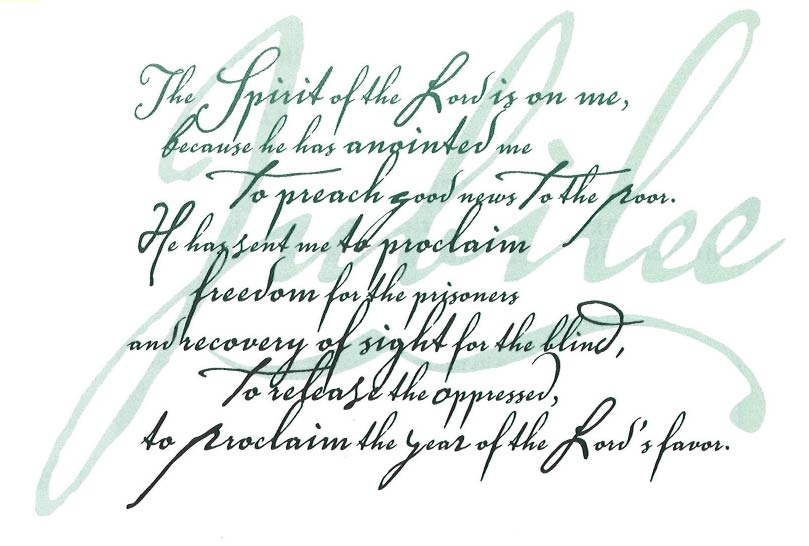 Jubilee
The Spirit of the Lord is on me,
because he has anointed me
to preach good news to the poor.
He has sent me to proclaim
freedom for the prisoners
and recovery of sight for the blind,
to release the oppressed,
to proclaim the year of the Lord's favor.